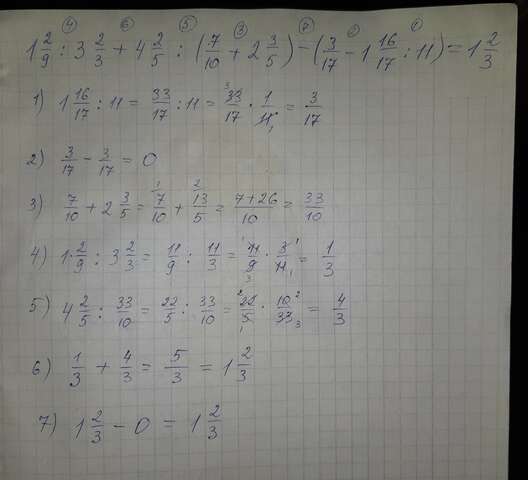 ④ ⑥ ⑤ ③ ⑦ ② ①
1 2/9 : 3 2/3 + 4 2/5 : (7/10 + 2 3/5) - (3/17 - 1 16/17 : 11) = 1 2/3
1) 1 16/17 : 11 = 33/17 : 11 = 33/17 · 1/11 = 3/17
2) 3/17 - 3/17 = 0
3) 7/10 + 2 3/5 = 7/10 + 13/5 = 7+26/10 = 33/10
4) 1 2/9 : 3 2/3 = 11/9 : 11/3 = 11/9 · 3/11 = 1/3
5) 4 2/5 : 33/10 = 22/5 : 33/10 = 22/5 · 10/33 = 4/3
6) 1/3 + 4/3 = 5/3 = 1 2/3
7) 1 2/3 - 0 = 1 2/3